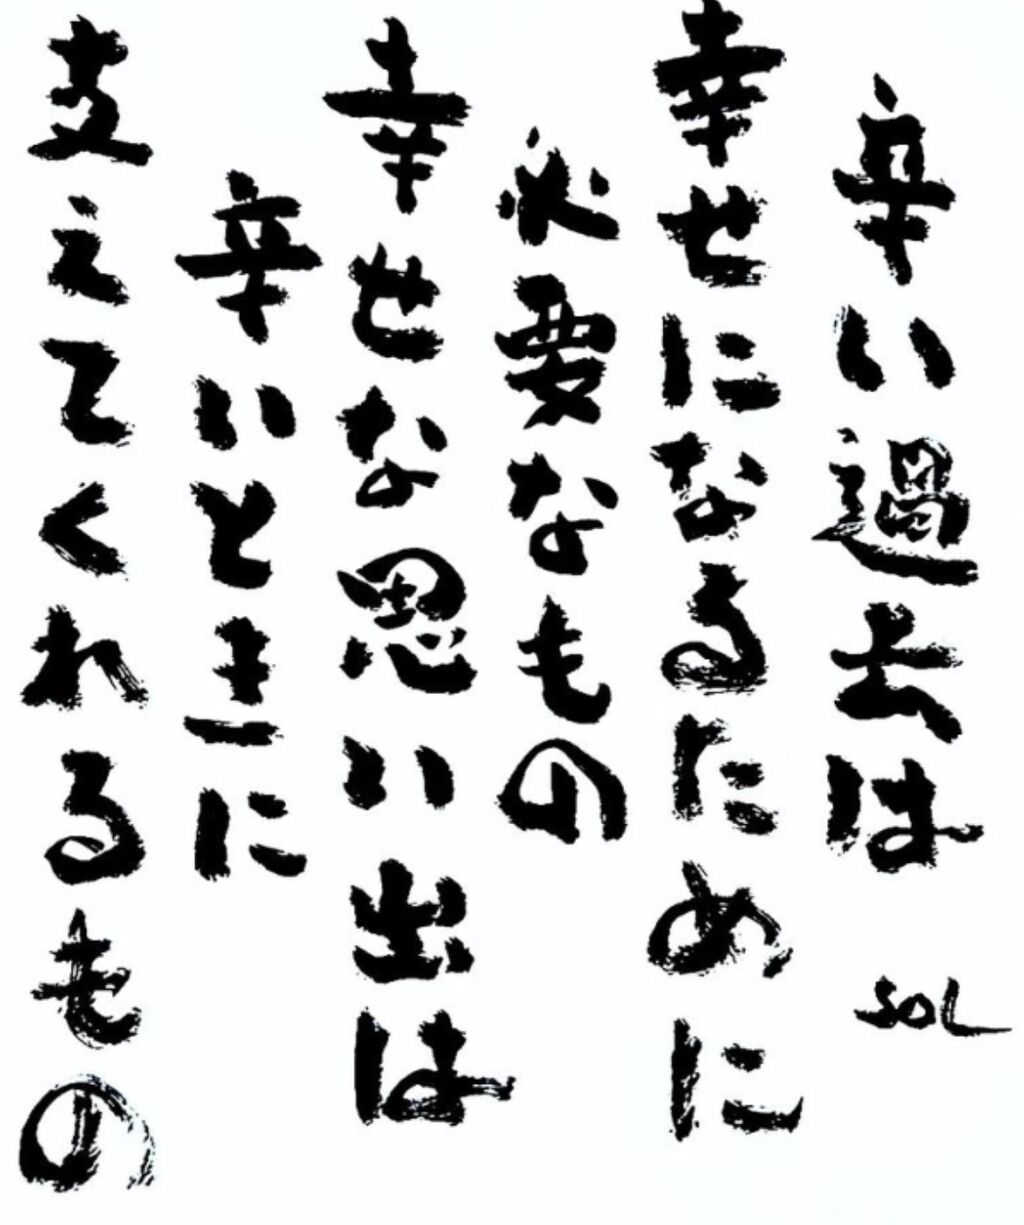 辛い過去は
幸せになるために
必要なもの
幸せな思い出は
辛いときに
支えてくれるもの
SOL